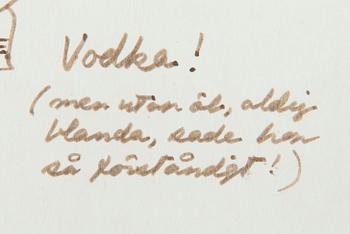 Vodka!
(men utan öl, aldrig
blanda, sade han
så förståndigt!)